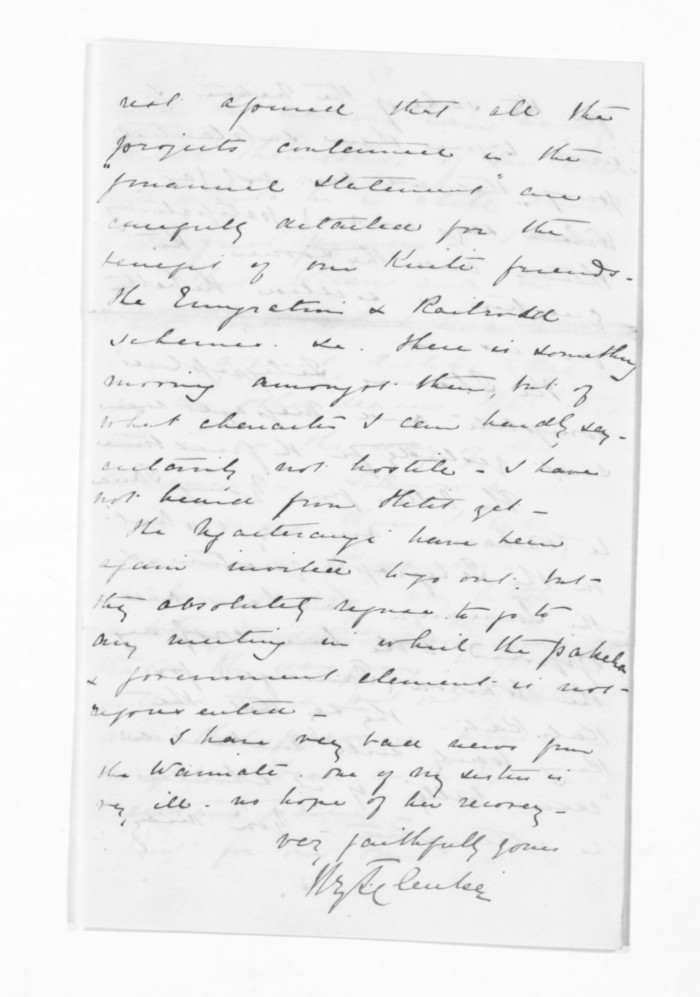 not afraid that all the
projects contained in the
"financial statement" are
carefully detailed for the
benefit of our Kuite friends -
the Emigration & Railroad
schemes. &c. there is something
moving amongst them, but of
what character I can hardly say -
certainly not hostile - I have
not heard from yet -
The Ngaiterangi have been
again invited to go out. but -
they absolutely refuse to go to
any meeting in which the pakeha
& government element is not -
represented -
I have very bad news from
the Waimate. one of my sisters is
very ill - no hope of her recovery -
very faithfully yours
Clarke